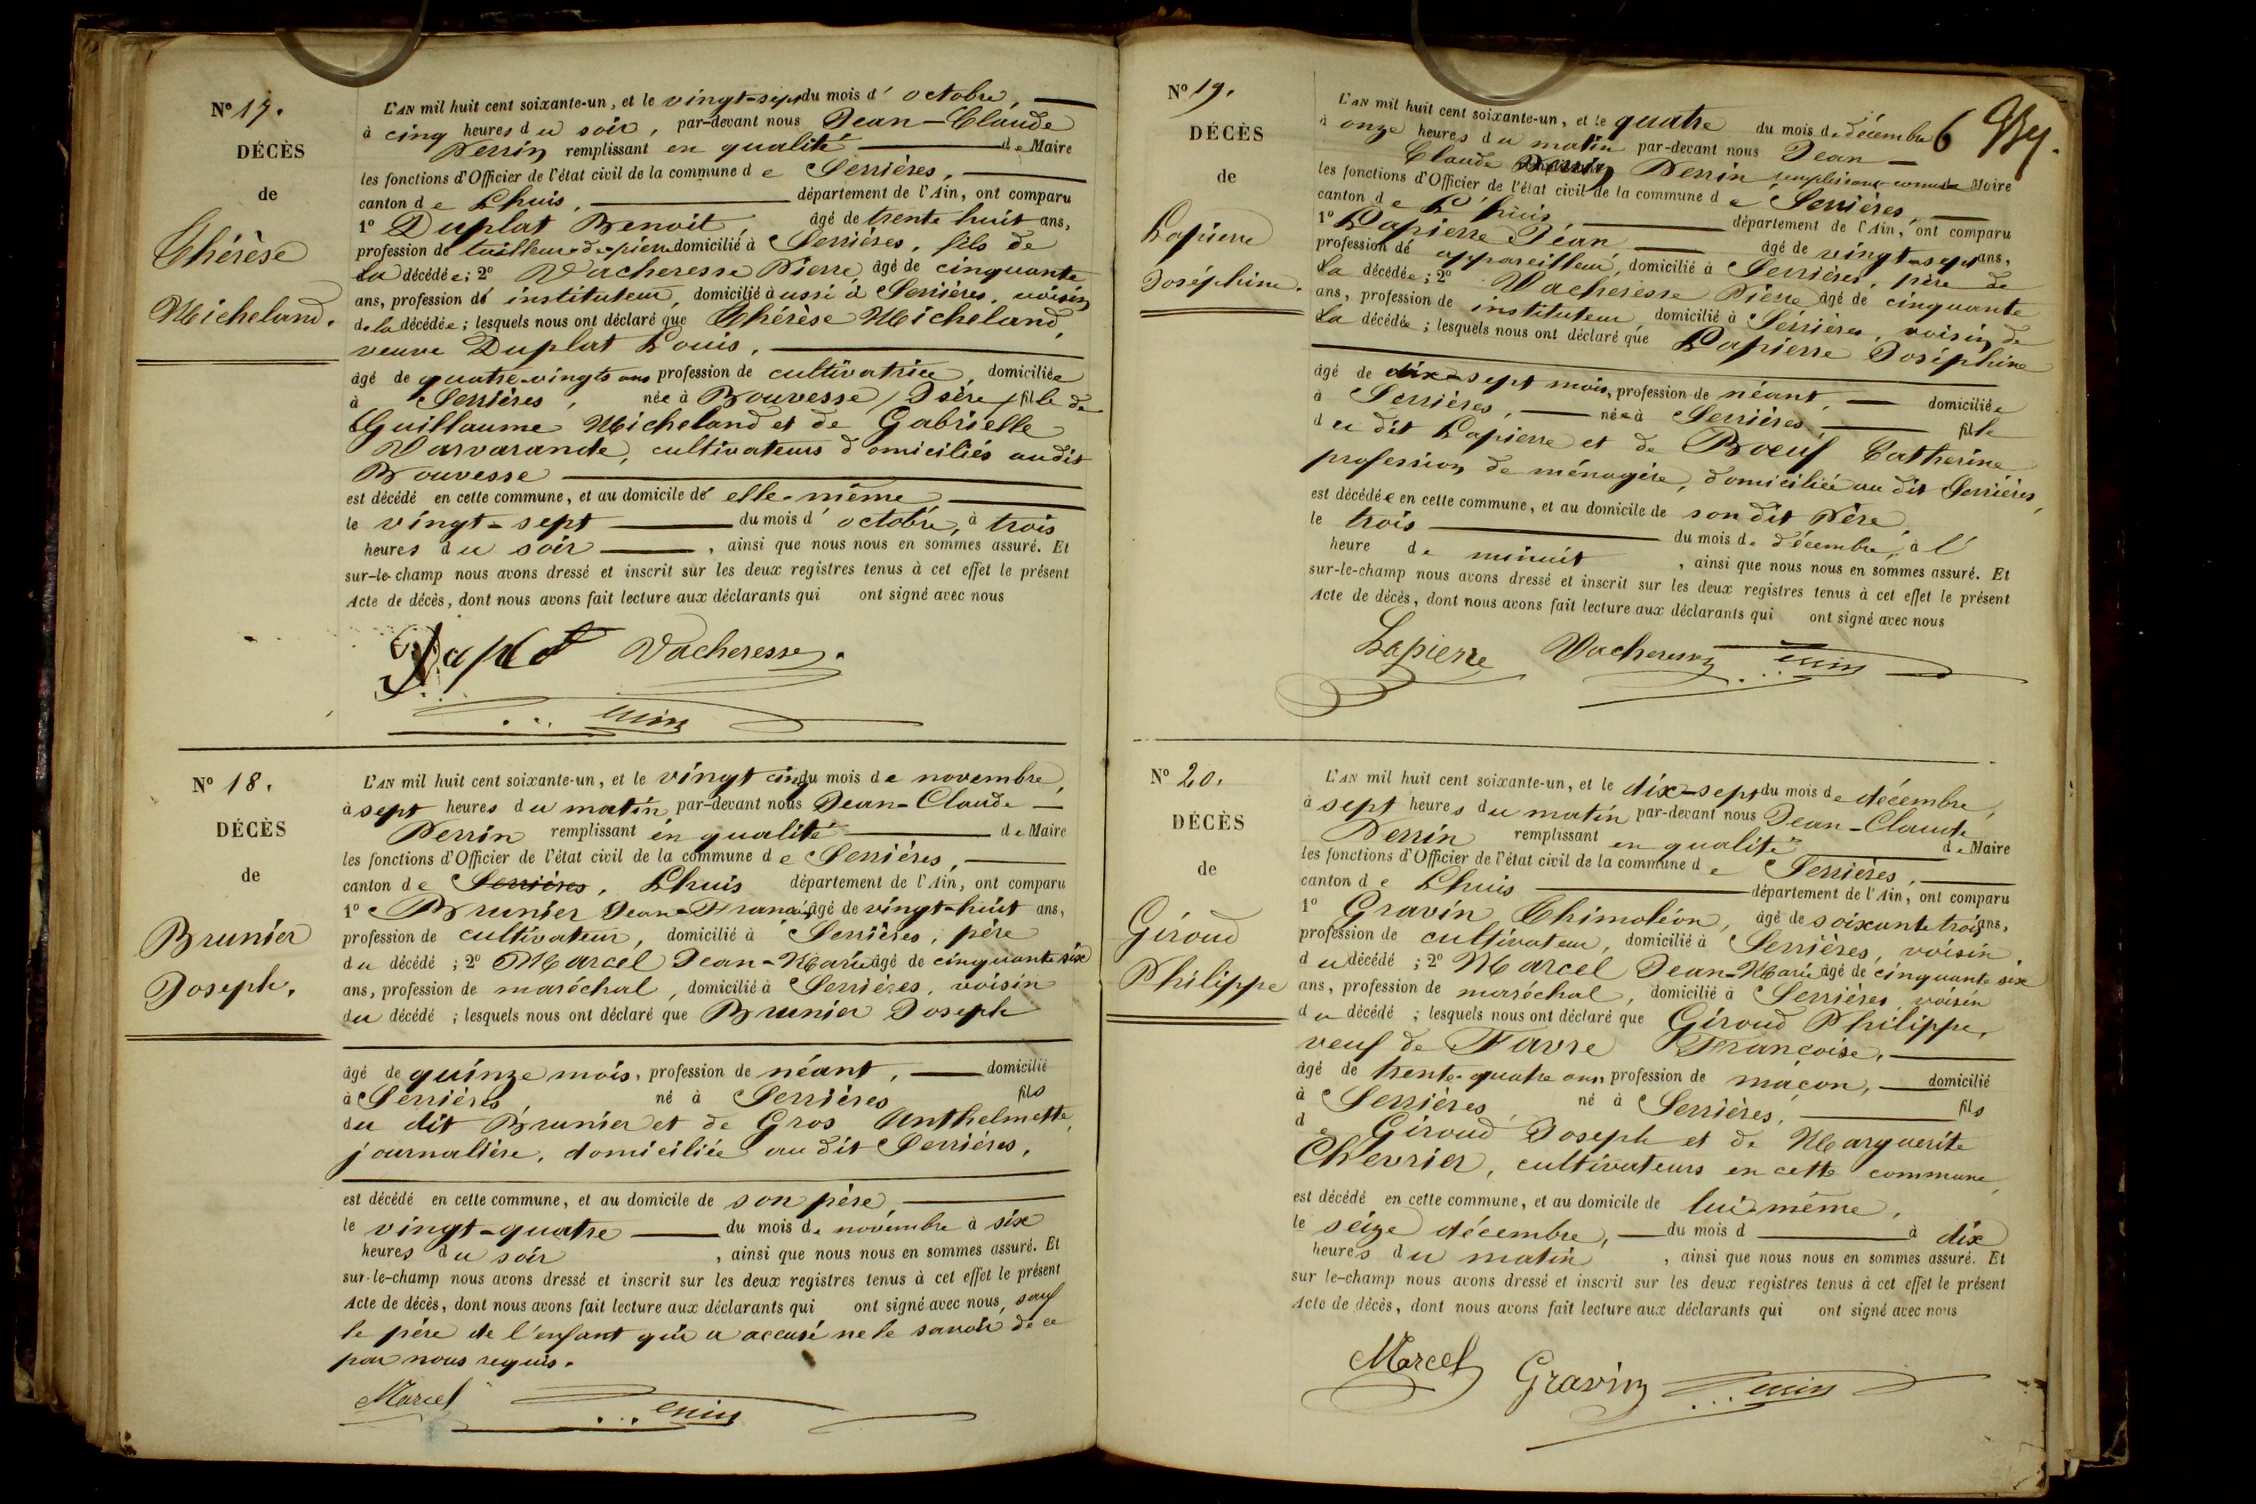 N° 17.
DÉCÈS
de
Thérèse
Micheland.
L'AN mil huit cent soixante-un, et le vingt-sept du mois d'octobre,
à cinq heures du soir, par-devant nous Jean-Claude
Perrin remplissant en qualité de Maire
les fonctions d'Officier de l'état civil de la commune de Serrières,
canton de Lhuis, département de l'Ain, ont comparu
1° Duplat Benoit, âgé de trente huit ans,
profession de tailleur de pierre domicilié à Serrières, fils de
la décédée; 2° Vacheresse Pierre, âgé de cinquante
ans, profession d' instituteur, domicilié aussi à Serrières, voisin
de la décédée; lesquels nous ont déclaré que Thérèse Micheland,
veuve Duplat Louis,
âgé de quatre-vingts ans profession de cultivatrice, domiciliée
à Serrières, née à Bouvesse, (Isère) fille de
Guillaume Micheland et de Gabrielle
Varvarande, cultivateurs domiciliés audit
Bouvesse
est décédé en cette commune, et au domicile de elle-même
le vingt-sept du mois d'octobre, à trois
heures du soir, ainsi que nous nous en sommes assuré. Et
sur-le-champ nous avons dressé et inscrit sur les deux registres tenus à cet effet le présent
Acte de décès, dont nous avons fait lecture aux déclarants qui ont signé avec nous
Vacheresse.
N° 18.
DÉCÈS
de
Brunier
Joseph.
L'AN mil huit cent soixante-un, et le vingt cinq du mois de novembre,
à sept heures du matin, par-devant nous Jean-Claude
Perrin remplissant en qualité de Maire
les fonctions d'Officier de l'état civil de la commune de Serrières,
canton de Serrières, Lhuis département de l'Ain, ont comparu
1° Brunier Jean-François, âgé de vingt-huit ans,
profession de cultivateur, domicilié à Serrières, père
du décédé; 2° Marcel Jean-Marie âgé de cinquante six
ans, profession de maréchal, domicilié à Serrières, voisin
du décédé; lesquels nous ont déclaré que Brunier Joseph
âgé de quinze mois, profession de néant, domicilié
à Serrières, né à Serrières fils
du dit Brunier et de Gros Anthelmette,
journalière, domiciliée au dit Serrières,
est décédé en cette commune, et au domicile de son père
le vingt-quatre du mois de novembre à six
heures du soir, ainsi que nous nous en sommes assuré. Et
sur-le-champ nous avons dressé et inscrit sur les deux registres tenus à cet effet le présent
Acte de décès, dont nous avons fait lecture aux déclarants qui ont signé avec nous, sauf
le père de l'enfant qui a accusé ne le savoir de ce
par nous requis.
Marcel
N° 19.
DÉCÈS
de
Lapierre
Joséphine.
L'AN mil huit cent soixante-un, et le quatre du mois de décembre 6
à onze heures du matin par-devant nous Jean-
Claude Perrin remplissant comme Maire
les fonctions d'Officier de l'état civil de la commune de Serrières,
canton de Lhuis, département de l'Ain, ont comparu
1° Lapierre Jean âgé de vingt-sept ans,
profession de appareilleur, domicilié à Serrières, père de
la décédée; 2° Vacheresse Pierre âgé de cinquante
ans, profession de instituteur domicilié à Serrières, voisin de
la décédée; lesquels nous ont déclaré que Lapierre Joséphine
âgé de dix-sept mois, profession de néant, domiciliée
à Serrières, née à Serrières, fille
du dit Lapierre et de Boeuf Catherine
profession de ménagère, domiciliée au dit Serrières,
est décédée en cette commune, et au domicile de son dit Père,
le trois du mois de décembre, à l'
heure de minuit, ainsi que nous nous en sommes assuré. Et
sur-le-champ nous avons dressé et inscrit sur les deux registres tenus à cet effet le présent
Acte de décès, dont nous avons fait lecture aux déclarants qui ont signé avec nous
Lapierre Vacheresse
N° 20.
DÉCÈS
de
Giroud
Philippe
L'AN mil huit cent soixante-un, et le dix-sept du mois de décembre,
à sept heures du matin par-devant nous Jean-Claude
Perrin remplissant en qualité de Maire
les fonctions d'Officier de l'état civil de la commune de Serrières,
canton de Lhuis département de l'Ain, ont comparu
1° Gravin Thimoléon, âgé de soixante trois ans,
profession de cultivateur, domicilié à Serrières, voisin
du décédé; 2° Marcel Jean-Marie âgé de cinquante six
ans, profession de maréchal, domicilié à Serrières, voisin
du décédé; lesquels nous ont déclaré que Giroud Philippe,
veuf de Favre Françoise,
âgé de trente-quatre ans profession de maçon, domicilié
à Serrières, né à Serrières, fils
de Giroud Joseph et de Marguerite
Chevrier, cultivateurs en cette commune,
est décédé en cette commune, et au domicile de lui même,
le seize décembre, du mois d à dix
heures du matin, ainsi que nous nous en sommes assuré. Et
sur-le-champ nous avons dressé et inscrit sur les deux registres tenus à cet effet le présent
Acte de décès, dont nous avons fait lecture aux déclarants qui ont signé avec nous
Marcel Gravin